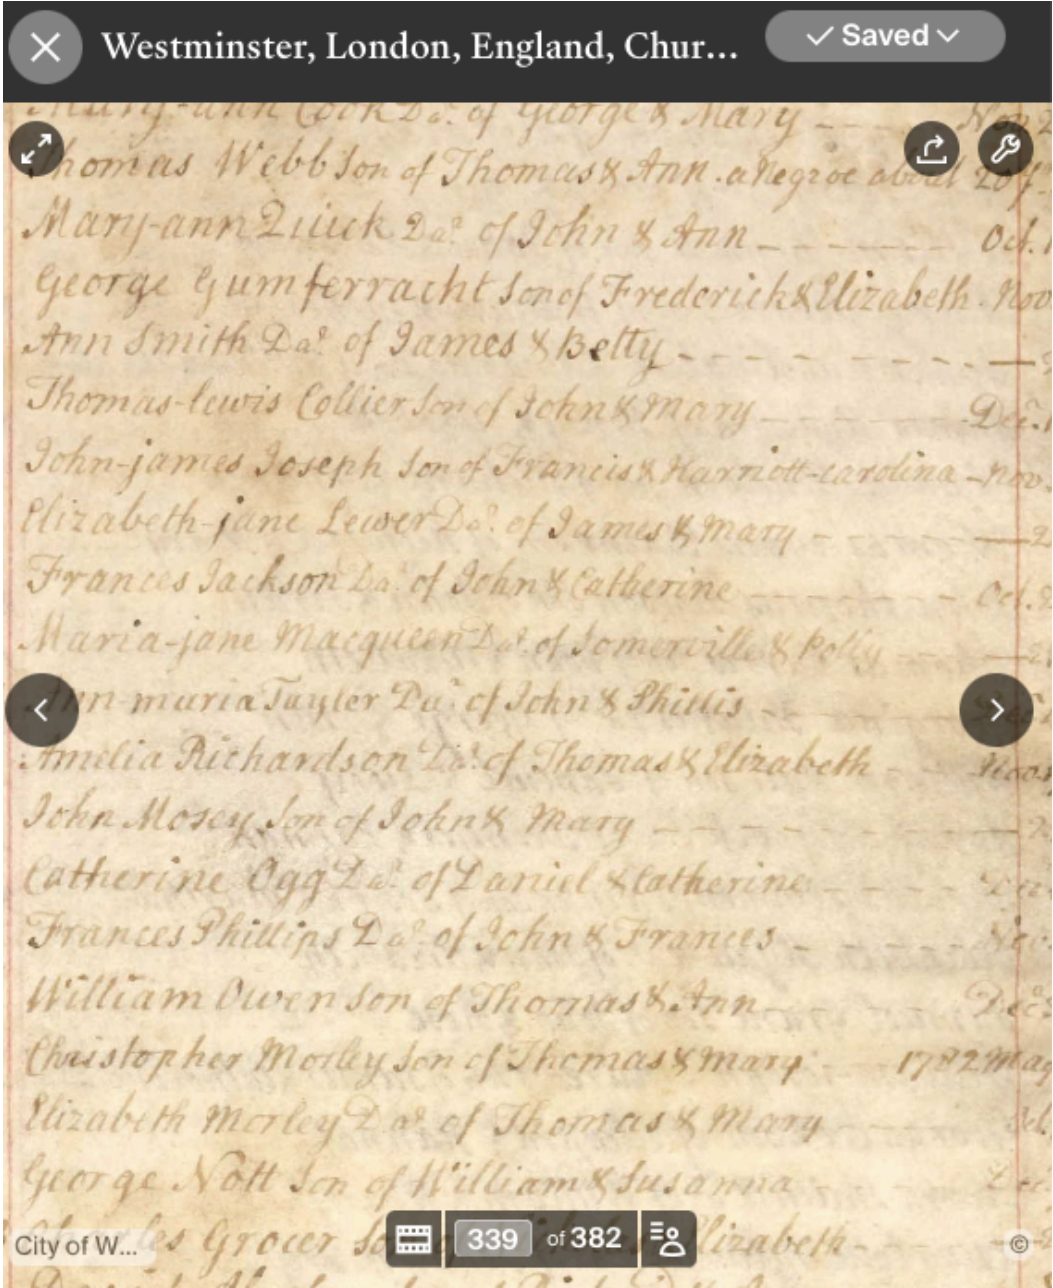 Westminster, London, England, Chur...
Saved
Mary-ann Cook Da.r of George & Mary Nov 2
Thomas Webb Son of Thomas & Ann. a Negroe about 20 y
Mary-ann Quick Da.r of John & Ann Oct. 1
George Gumferracht Son of Frederick & Elizabeth. Nov
Ann Smith Da.r of James & Betty
Thomas-lewis Collier Son of John & Mary Dec.r 1
John-james Joseph Son of Francis & Harriott-carolina Nov
Elizabeth-jane Lewer Da.r of James & Mary 2
Frances Jackson Da.r of John & Catherine Oct.
Maria-jane Macqueen Da.r of Somerville & Polly 2
Ann-maria Tayler Da.r of John & Phillis Dec
Amelia Richardson Da.r of Thomas & Elizabeth Nov
John Mosey Son of John & Mary
Catherine Ogg Da.r of Daniel & Catherine Dec
Frances Phillips Da.r of John & Frances Nov
William Owen Son of Thomas & Ann Dec.r
Christopher Morley Son of Thomas & Mary 1782 May
Elizabeth Morley Da.r of Thomas & Mary
George Nott Son of William & Susanna Dec
Grocer Elizabeth
City of W...
339 of 382
©